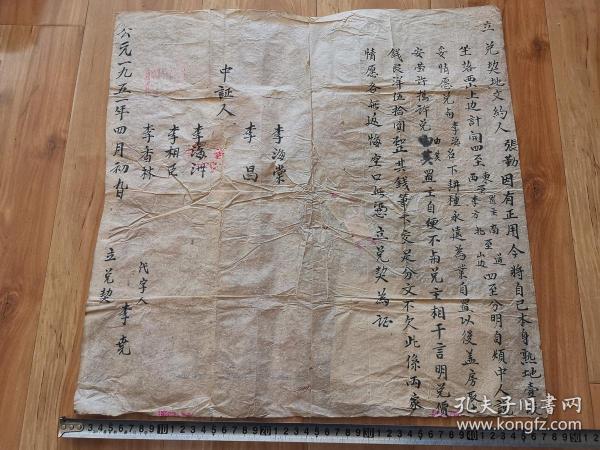 立兑契地文約人 張勤因有正用今將自己本身熟地壹
坐落西上边計開四至東至買主南至道西至李方北至山边四至分明自煩中人説
妥情愿兑與李海名下耕種永遠為業自置以後盖房
安塋許搃許兑由置主自便不與兑主相干言明兑價
錢良洋伍拾圓整其錢筆下交足分文不欠此係两家
情愿各無返悔空口無憑立兑契為証
中証人
李海棠
李昌
李海洲
李相臣
李香林
代字人 李堯
立兑契
公元一九五一年四月初九日
孔夫子旧书网